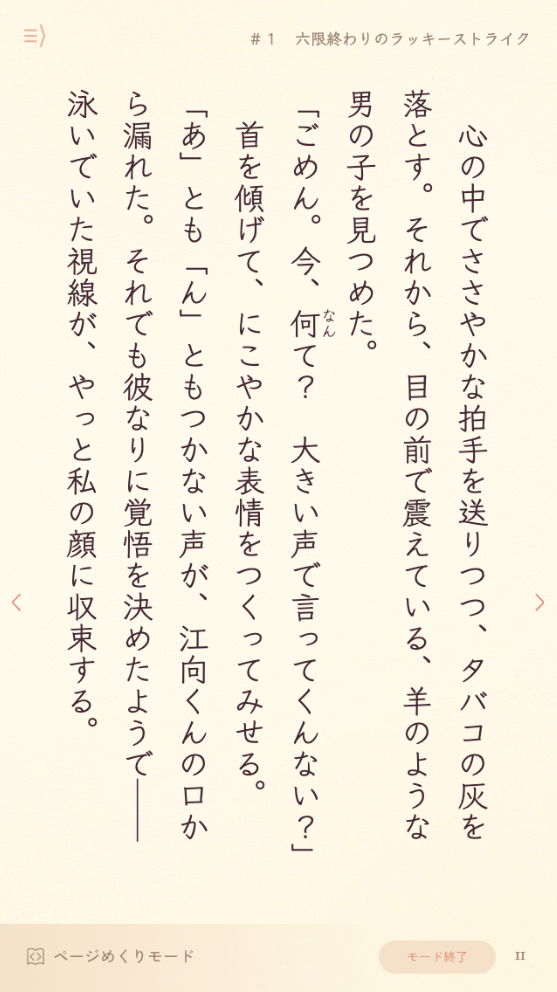 #1 六限終わりのラッキーストライク
心の中でささやかな拍手を送りつつ、タバコの灰を
落とす。それから、目の前で震えている、羊のような
男の子を見つめた。
「ごめん。今、何て? 大きい声で言ってくんない?」
なん
首を傾げて、にこやかな表情をつくってみせる。
「あ」とも「ん」ともつかない声が、江向くんの口か
ら漏れた。それでも彼なりに覚悟を決めたようで――
泳いでいた視線が、やっと私の顔に収束する。
ページめくりモード
モード終了